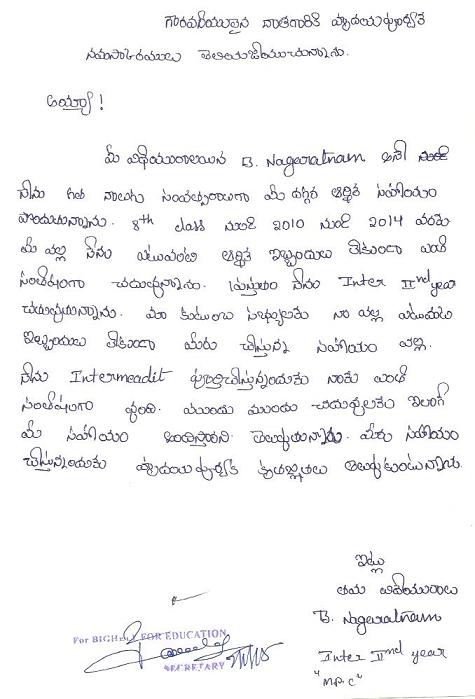 గౌరవనీయులైన దాతగారికి హృదయపూర్వక
నమస్కారములు తెలియజేయుచున్నాను.
అయ్యా !
మీ విధేయురాలయిన B. Nagaratnam అనే
నేను గత నాలుగు సంవత్సరాలుగా మీ దగ్గర ఆర్థిక సహాయం
పొందుతున్నాను. 8th class నుండి 2010 నుండి 2014 వరకు
మీ వల్ల నేను ఎటువంటి ఆర్థిక ఇబ్బందులు లేకుండా ఎంతో
సంతోషంగా చదువుతున్నాను. ప్రస్తుతం నేను Inter IInd year
చదువుతున్నాను. మా కుటుంబ సభ్యులకు నా వల్ల ఎటువంటి
ఇబ్బందులు లేకుండా మీరు చేస్తున్న సహాయం వల్ల.
నేను Intermeadit పూర్తిచేస్తున్నందుకు నాకు ఎంతో
సంతోషంగా వుంది. ముందు ముందు చదువులకు ఇలాగే
మీ సహాయం అందిస్తారని తెలుపుతున్నాను. మీరు సహాయం
చేస్తున్నందుకు హృదయపూర్వక కృతజ్ఞతలు తెలుపుకుంటున్నాను.
ఇట్లు
తమ విధేయురాలు
B. Nagaratnam
Inter IInd year
"M.P.C"
FOR EDUCATION
SECRETARY